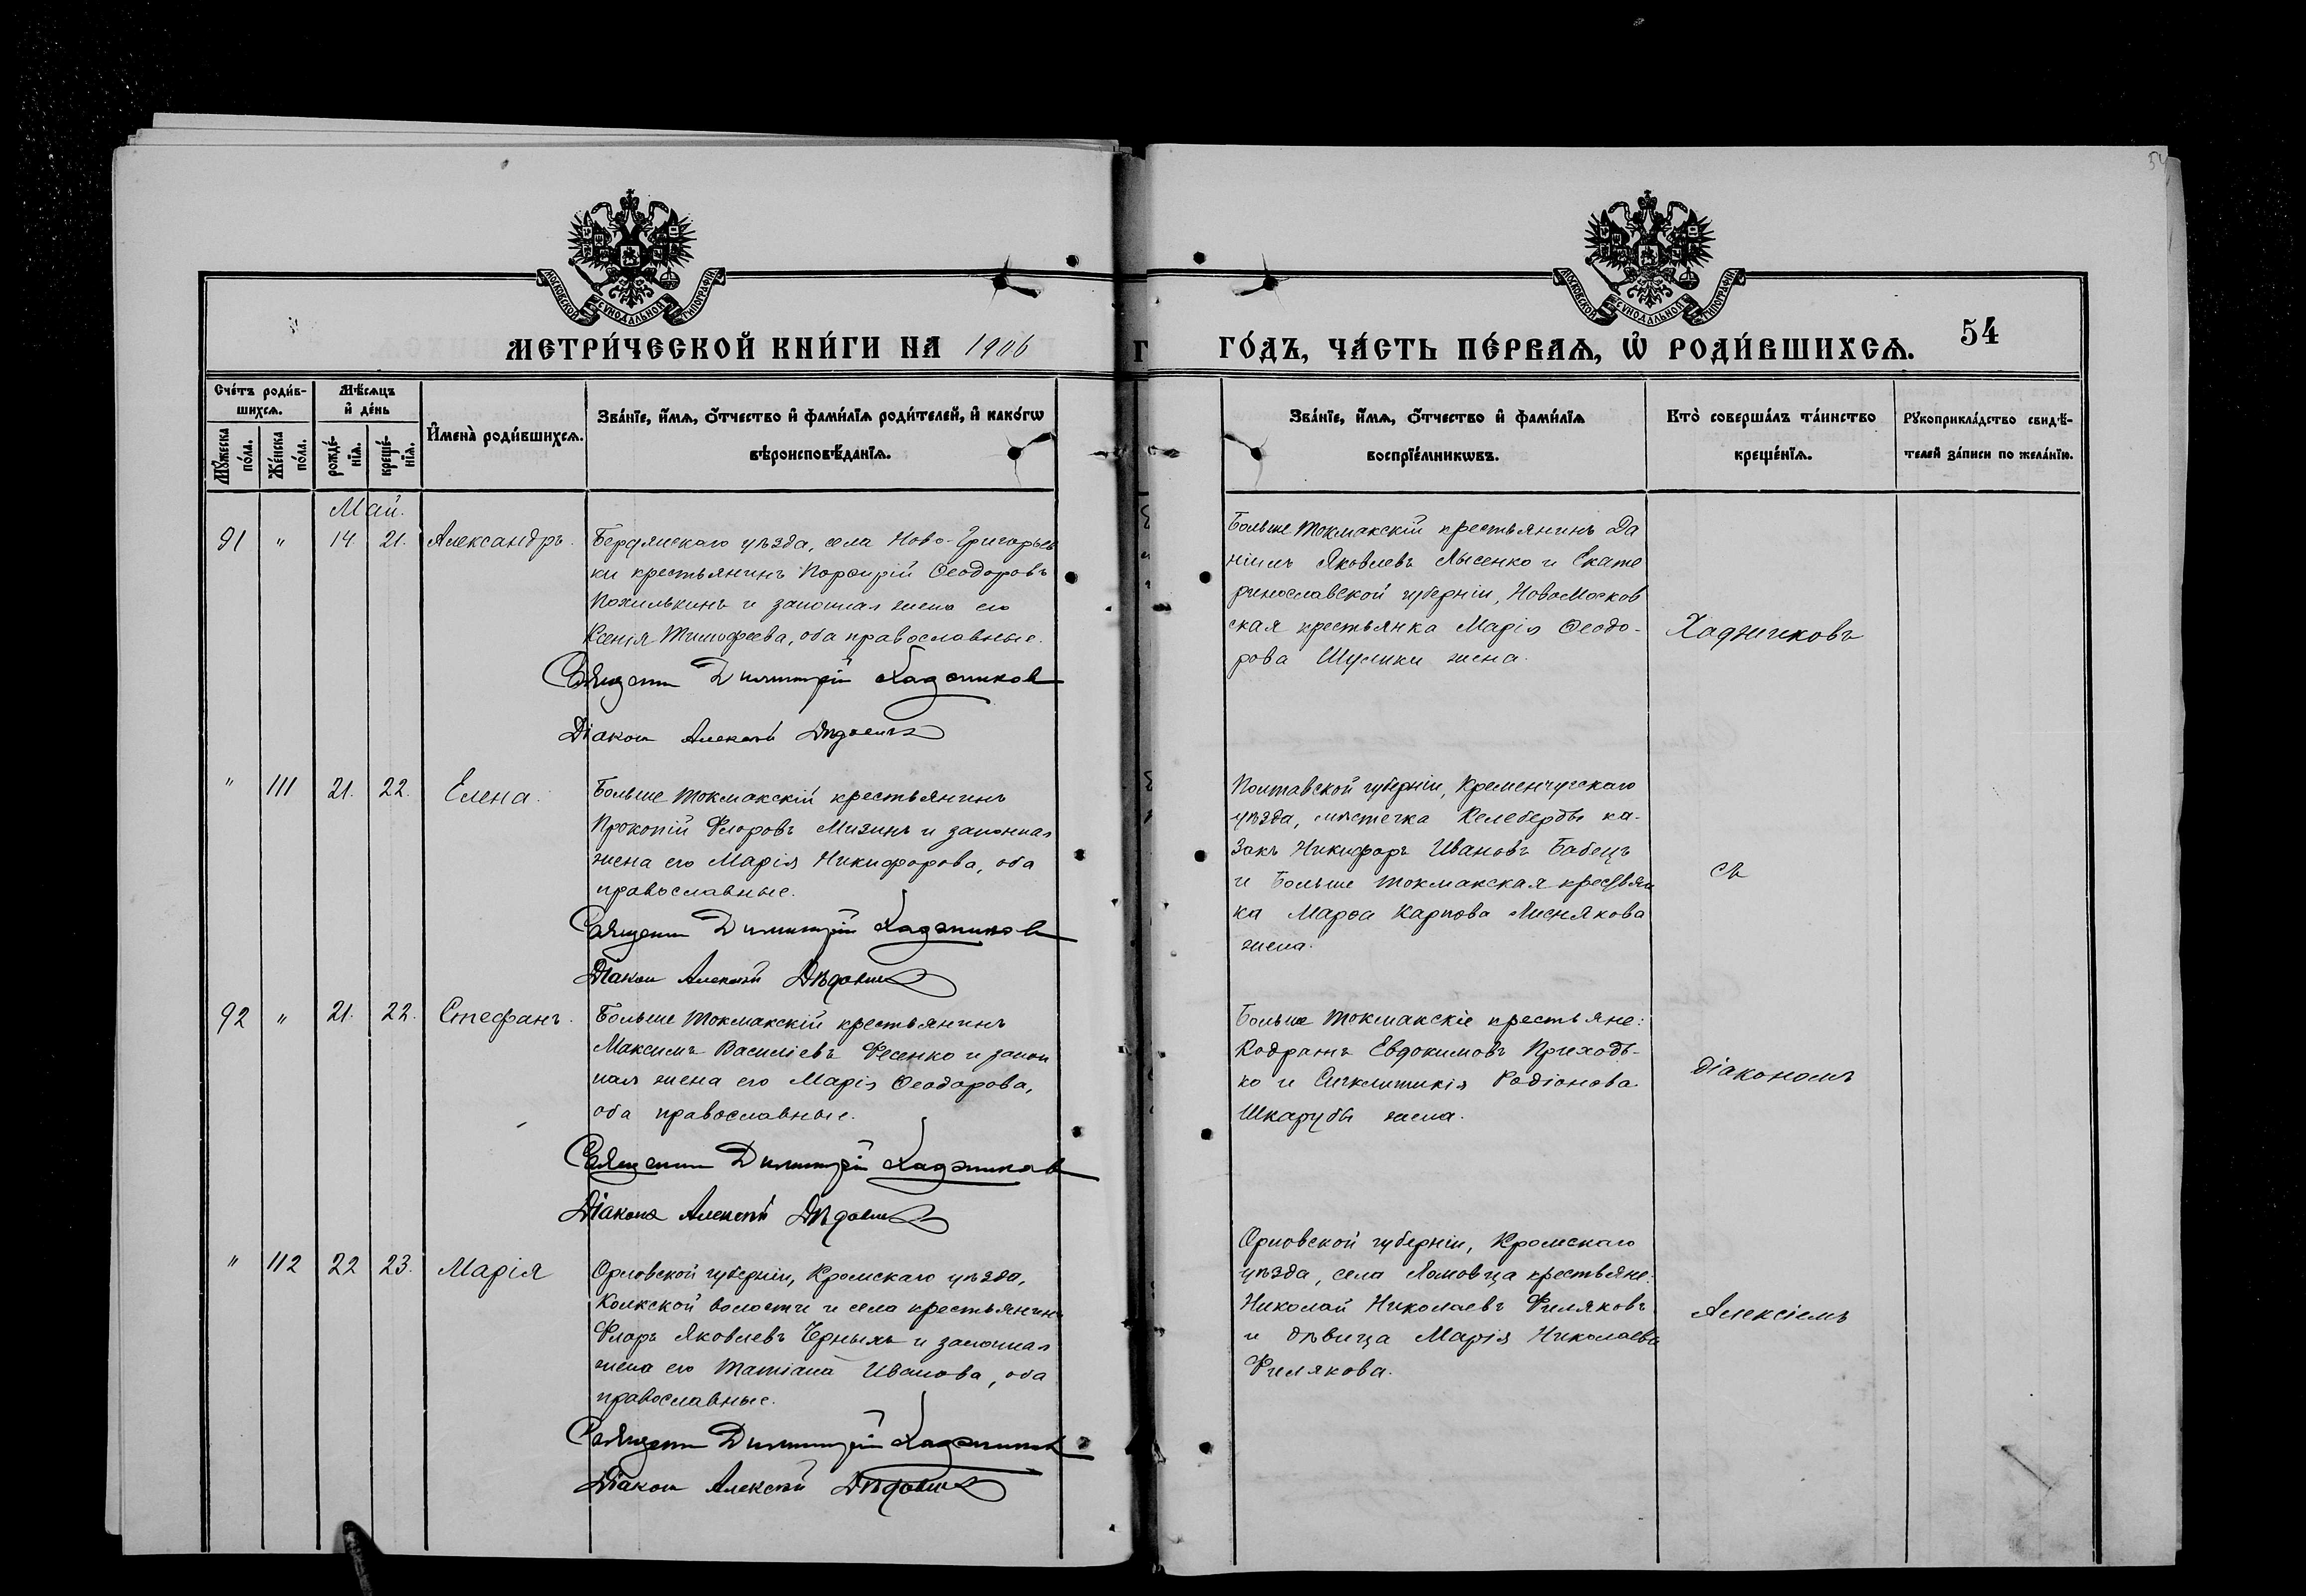 54
МОСКОВСКОЙ СѴНОДАЛЬНОЙ ТИПОГРАФІИ
МОСКОВСКОЙ СѴНОДАЛЬНОЙ ТИПОГРАФІИ
МЕТРИ́ЧЕСКОЙ КНИ́ГИ НА 1906
Г
ГО́ДЪ, ЧА́СТЬ ПЕ́РВАѦ, Ѡ҆ РОДИ́ВШИХСѦ.
54
Сче́тъ роди́в-
шихсѧ.
Мꙋ́жеска по́ла.
Же́нска по́ла.
Мѣ́сѧцъ
и҆ де́нь
рожде́-
нїѧ.
креще́-
нїѧ.
И҆мена̀ роди́вшихсѧ.
Зва́нїе, и҆́мѧ, о҆́тчество и҆ фами́лїѧ роди́телей, и҆ како́гѡ
вѣроисповѣ́данїѧ.
Зва́нїе, и҆́мѧ, о҆́тчество и҆ фами́лїѧ
воспрїе́мникѡвъ.
Кто̀ соверша́лъ та́инство
креще́нїѧ.
Рꙋкоприкла́дство свидѣ́-
телей за́писи по жела́нїю.
Май.
91 " 14. 21. Александръ.
Бердянскаго уѣзда, села Ново-Григорьев
ки крестьянинъ Порѳирій Ѳеодоровъ
Похилькинъ и законная жена его
Ксенія Тимофеева, оба православные.
Священ Димитрій Хаджиков
Діакон Алексій Дѣдович
Больше Токмакскій крестьянинъ Да
ніилъ Яковлевъ Лысенко и Екате
ринославской губерніи, Новомосков
ская крестьянка Марія Ѳеодо-
рова Шулики жена.
Хаджиковъ
" 111 21. 22. Елена.
Больше Токмакскій крестьянинъ
Прокопій Флоровъ Мизинъ и законная
жена его Марія Никифорова, оба
православные.
Священ Димитрій Хаджиков
Діакон Алексій Дѣдович
Полтавской губерніи, Кременчугскаго
уѣзда, мѣстечка Келеберды ка-
закъ Никифоръ Ивановъ Бабецъ
и Больше Токмакская крестьян
ка Марѳа Карпова Леснякова
жена.
съ
92 " 21. 22. Стефанъ.
Больше Токмакскій крестьянинъ
Максимъ Василіевъ Фесенко и закон
ная жена его Марія Ѳеодорова,
оба православные.
Священ Димитрій Хаджиков
Діаконъ Алексій Дѣдович
Больше Токмакскіе крестьяне:
Кодратъ Евдокимовъ Приходь-
ко и Синклитикія Родіонова
Шкарубы жена.
Діакономъ
" 112 22 23. Марія
Орловской губерніи, Кромскаго уѣзда,
Колкской волости и села крестьянинъ
Флоръ Яковлевъ Черныхъ и законная
жена его Татіана Иванова, оба
православные.
Священ Димитрій Хаджиков
Діакон Алексій Дѣдович
Орловской губерніи, Кромскаго
уѣзда, села Ломовца крестьяне:
Николай Николаевъ Филяковъ
и дѣвица Марія Николаева
Филякова.
Алексіемъ